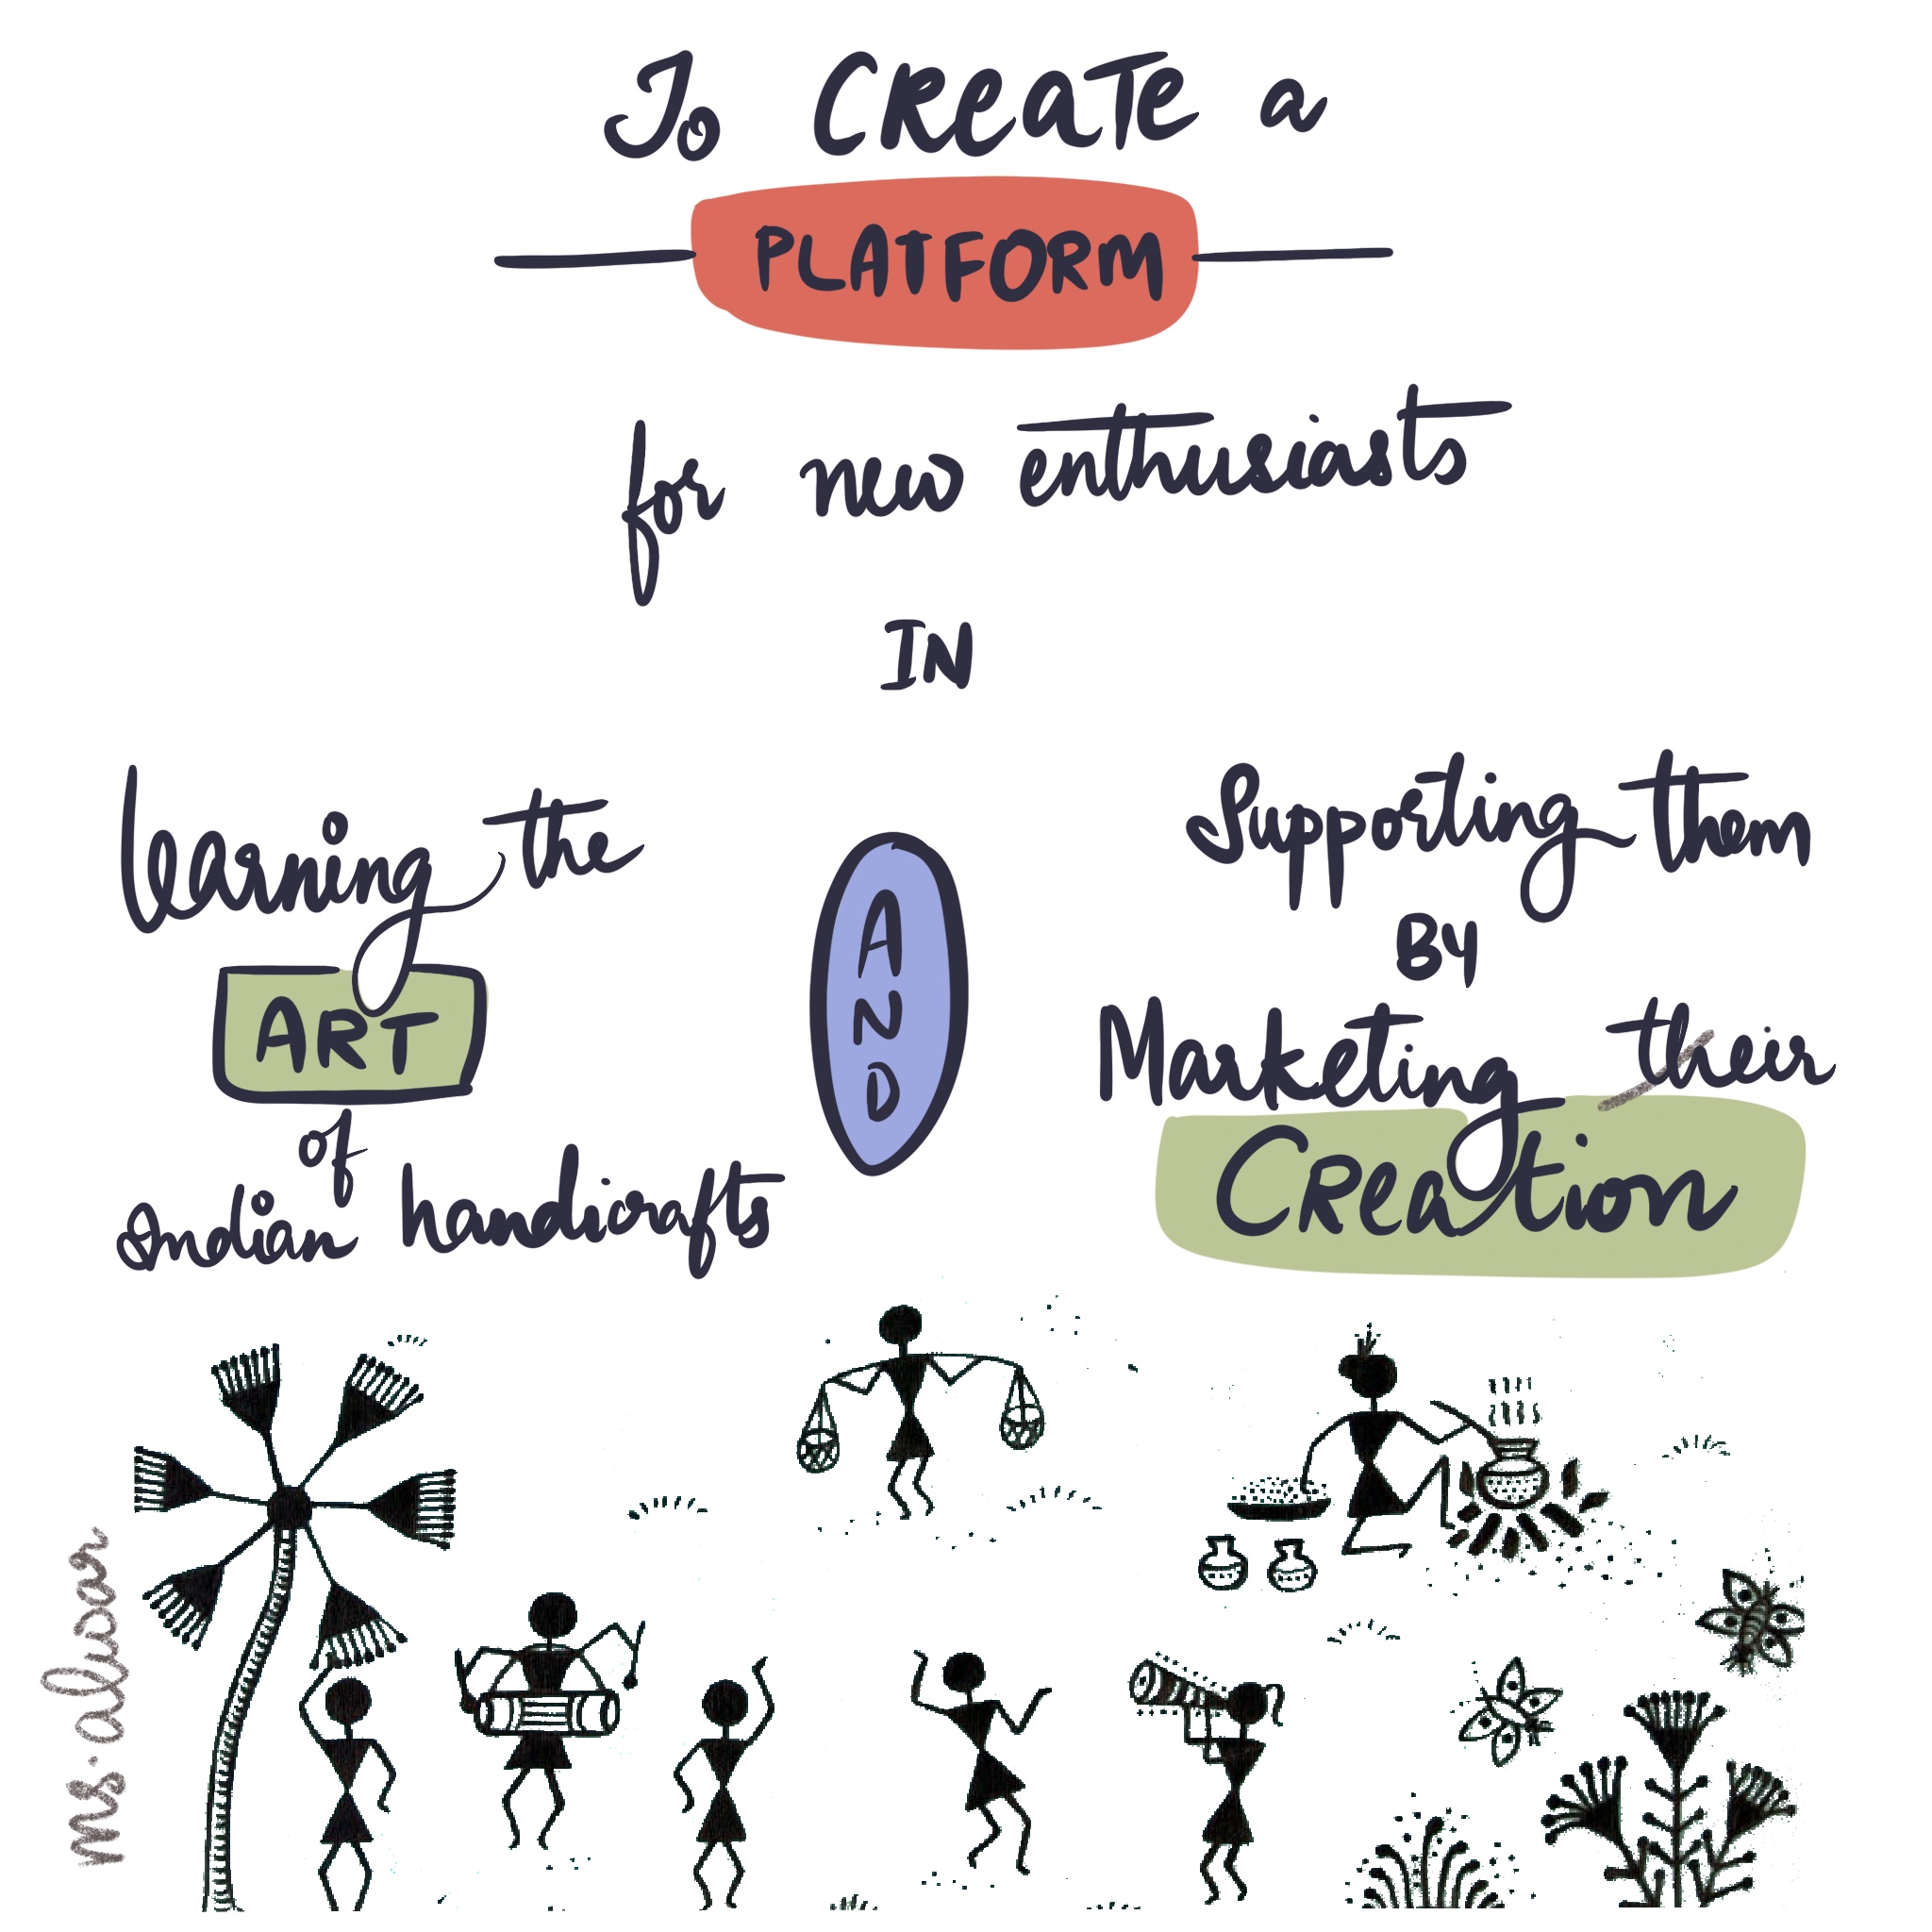 To CReaTe a
PLATFORM
for new enthusiasts
IN
learning the
ART
of
Indian handicrafts
AND
Supporting them
BY
Marketing their
CReation
ms.aliwar